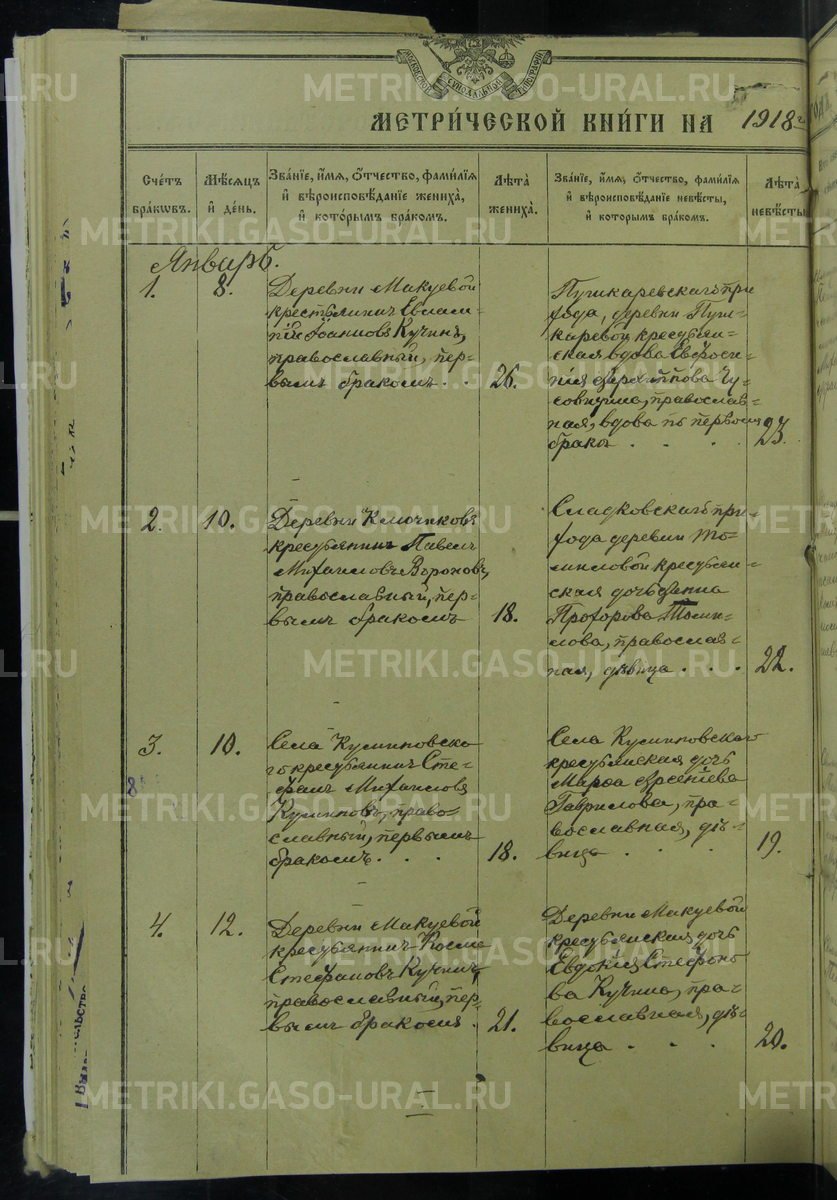 МОСКОВСКОЙ СѴНОДАЛЬНОЙ ТИПОГРАФІИ
МЕТРИ́ЧЕСКОЙ КНИ́ГИ НА 1918 г.
Счéтъ бра́кѡвъ.
Мѣ́сяцъ и҆ де́нь.
Зва́нїе, и҆́мѧ, ѻ҆́тчество, фами́лїѧ и҆ вѣроисповѣ́данїе жениха̀, и҆ кото́рымъ бра́комъ.
Лѣ̑та жениха̀.
Зва́нїе, и҆́мѧ, ѻ҆́тчество, фами́лїѧ и҆ вѣроисповѣ́данїе невѣ́сты, и҆ кото́рымъ бра́комъ.
Лѣ̑та невѣ́сты
Январь.
1.
8.
Деревни Макуевой
крестьянинъ Евлам-
пій Іоанновъ Кучинъ,
православный, пер-
вымъ бракомъ . .
26.
Пушкаревскаго при
хода, деревни Пуш-
каревой крестьян-
ская вдова Евфроси-
нія
православ-
ная, вдова по первомъ
бракѣ . . .
23.
2.
10.
Деревни Ключиковъ
крестьянинъ Павелъ
Михаиловъ Вороновъ,
православный, пер-
вымъ бракомъ
18.
Сладковскаго при-
хода деревни То-
миловой крестьян-
ская дочь Анна
Прохорова Томи-
лова, православ-
ная, дѣвица . . .
22.
3.
10.
Села Куминовска
го крестьянинъ Сте-
фанъ Михаиловъ
Куминовъ, право-
славный, первымъ
бракомъ . . .
18.
Села Куминовскаго
крестьянская дочь
Марѳа Арсентіева
Гаврилова, пра-
вославная, дѣ-
вица . . .
19.
4.
12.
Деревни Макуевой
крестьянинъ Косма
Стефановъ Кучинъ,
православный, пер-
вымъ бракомъ .
21.
Деревни Макуевой
крестьянская дочь
Евдокія Стефано
ва Кучина, пра-
вославная, дѣ-
вица . . .
20.
METRIKI.GASO-URAL.RU